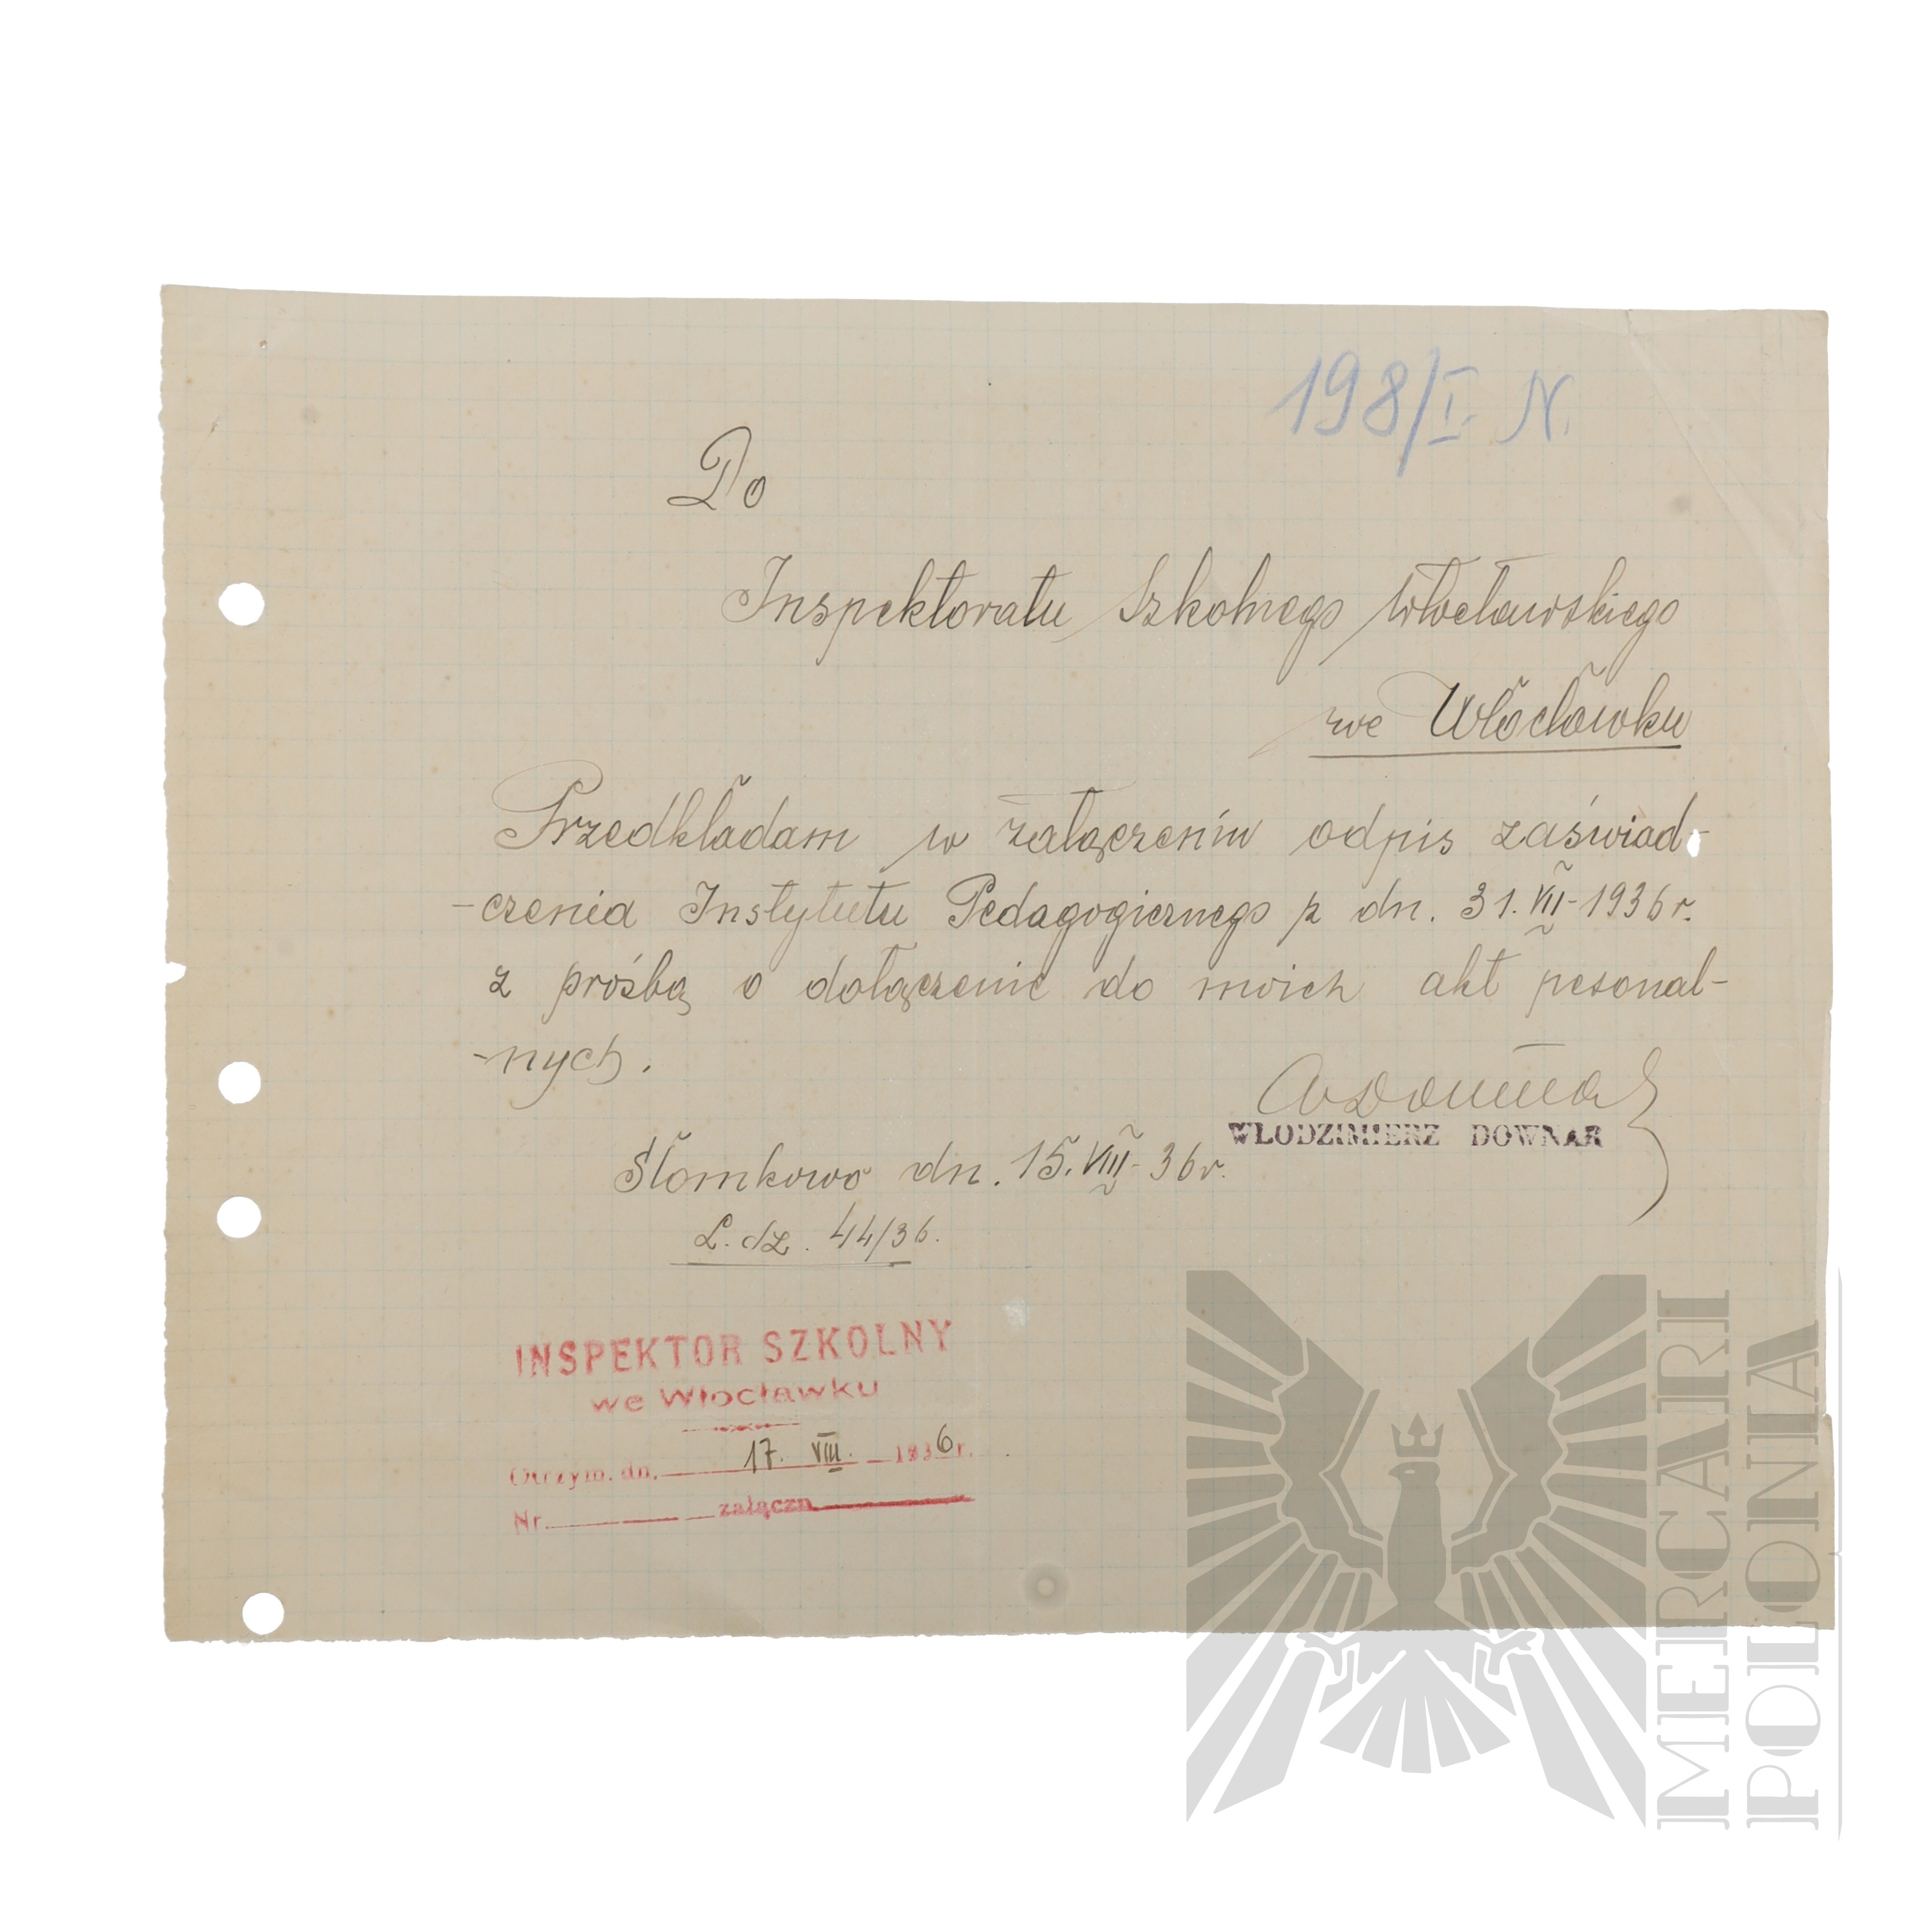 198/I. N.
Do
Inspektoratu Szkolnego Włocławskiego
we Włocławku
Przedkładam w załączeniu odpis zaświad-
-czenia Instytutu Pedagogicznego z dn. 31.VII-1936 r.
z prośbą o dołączenie do moich akt pesonal-
-nych.
WŁODZIMIERZ DOWNAR
Słomkowo dn. 15.VIII-36 r.
L. dz. 44/36.
INSPEKTOR SZKOLNY
we Włocławku
Otrzym. dn. 17. VIII. 1936 r.
Nr. załączn.
MERCARI
POLONIA